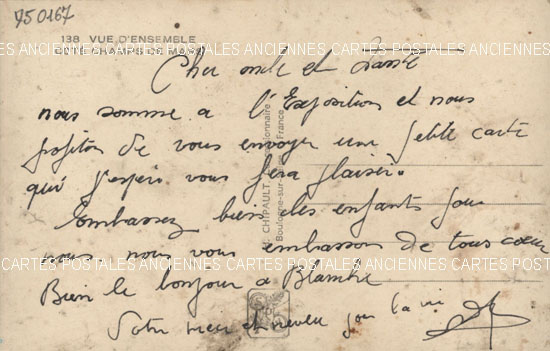 750167
138 VUE D'ENSEMBLE
ENTRE CHAMPS DE MARS
CARTES POSTALES ANCIENNES CARTES POSTALES ANCIENNES CARTES POSTALES ANCIENNES
Cher oncle et Tante
nous somme a l'Exposition et nous
profiton de vous envoyer une petite carte
qui j'espère vous fera plaisir.
Embassez bien les enfants pour
nous. nous vous embrasson de tous cœur
CARTES POSTALES ANCIENNES CARTES POSTALES ANCIENNES CARTES POSTALES ANCIENNES
Bien le bonjour a Blanche
Votre niece et neveu pour la vie
A. CHIPAULT, Concessionnaire
Boulogne-sur-Seine France